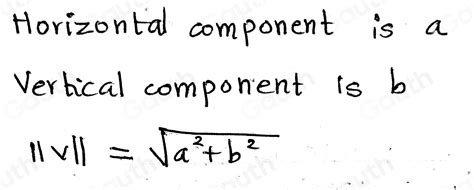 Horizontal component is a
Vertical component is b
||v|| = √a²+b²